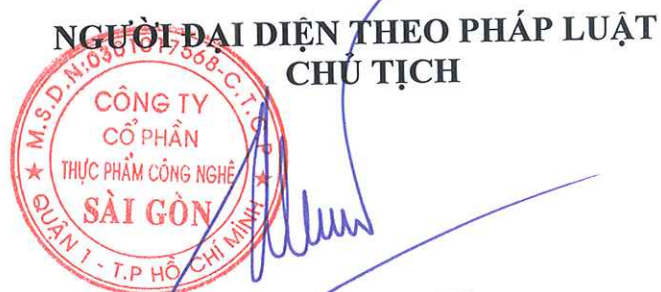 NGƯỜI ĐẠI DIỆN THEO PHÁP LUẬT
CHỦ TỊCH
CÔNG TY
CỔ PHẦN
THỰC PHẨM CÔNG NGHỆ
SÀI GÒN
QUẬN 1 - T.P HỒ CHÍ MINH